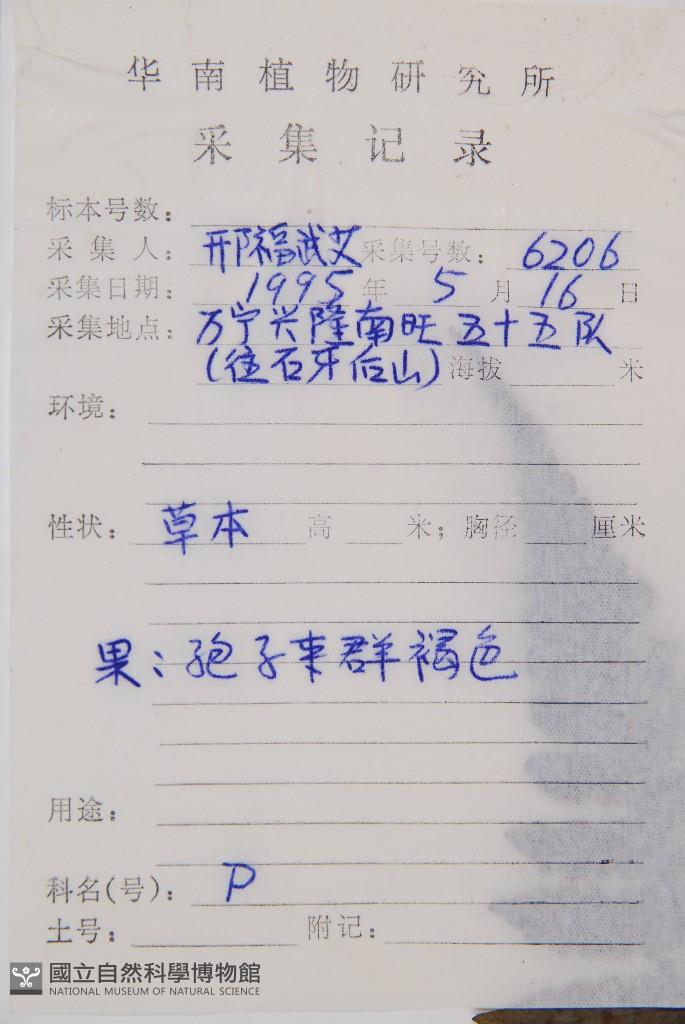 华南植物研究所
采集记录
标本号数：
采集人：邢福武艾 采集号数：6206
采集日期：1995年5月16日
采集地点：万宁兴隆南旺五十五队
(往石牙后山) 海拔 米
环境：
性状：草本 高 米；胸径 厘米
果：孢子束群褐色
用途：
科名(号)：P
土号： 附记：
國立自然科學博物館
NATIONAL MUSEUM OF NATURAL SCIENCE